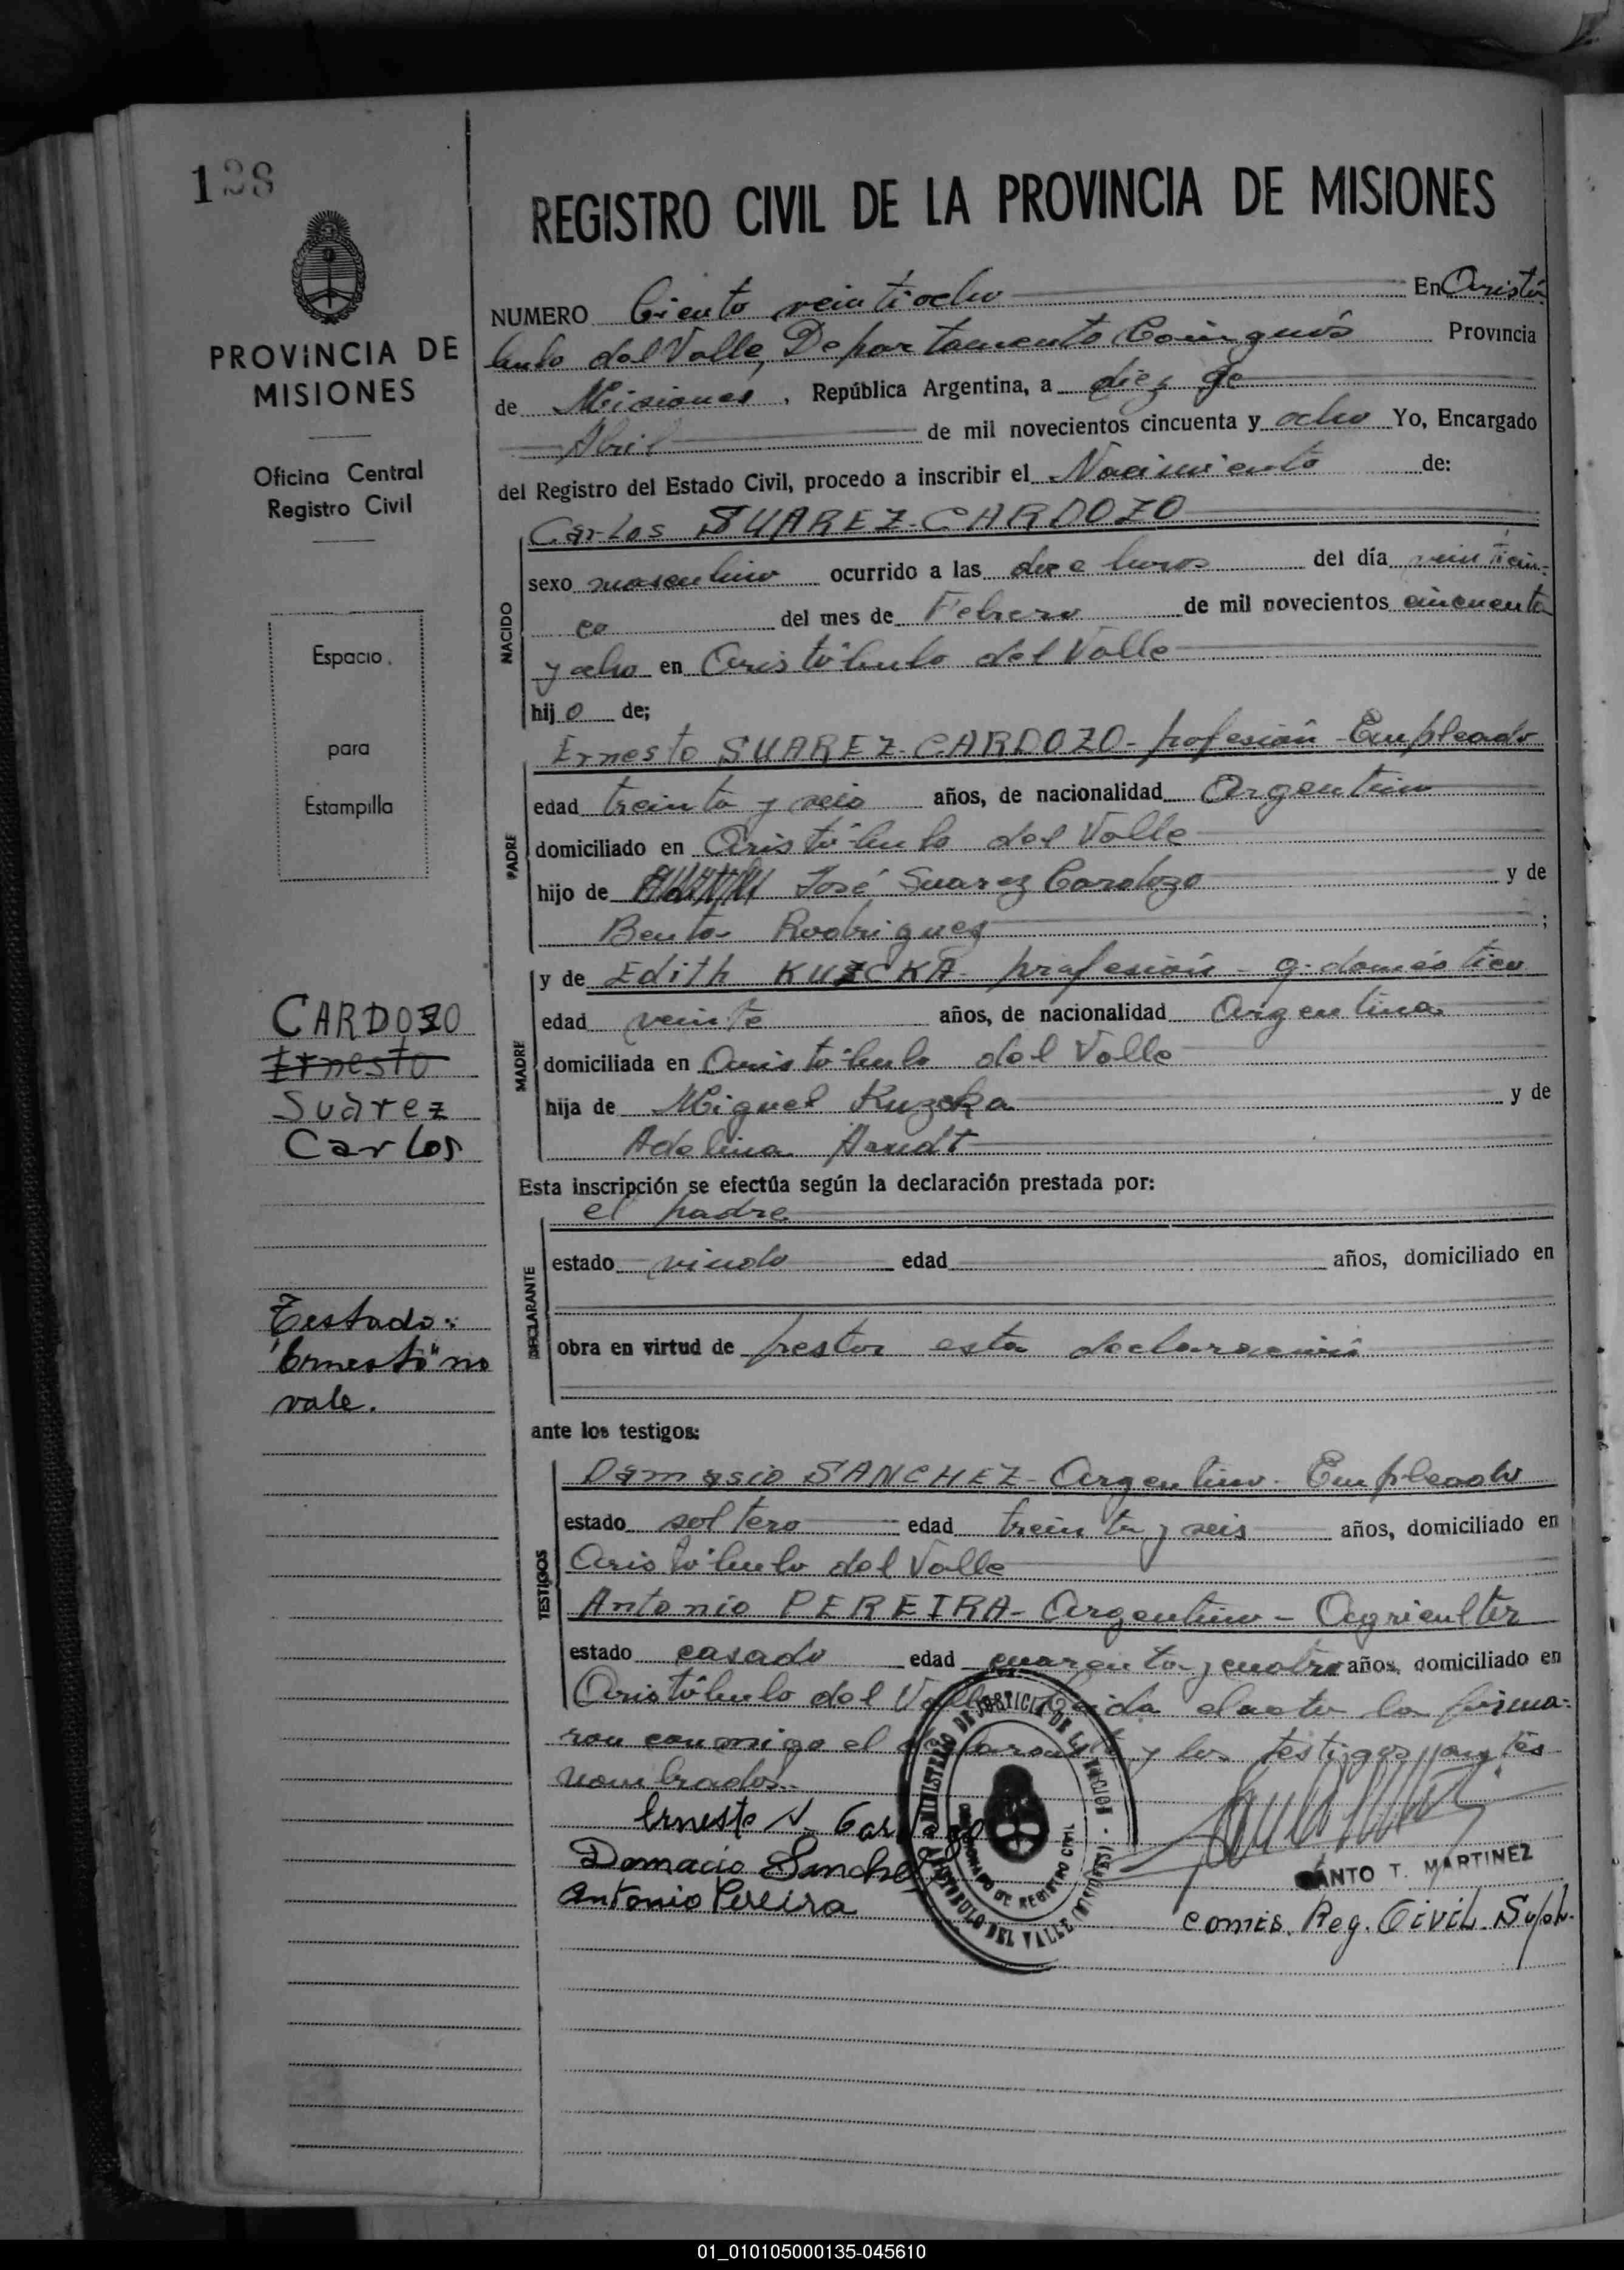 128
REGISTRO CIVIL DE LA PROVINCIA DE MISIONES
PROVINCIA DE
MISIONES
Oficina Central
Registro Civil
Espacio
para
Estampilla
CARDOZO
Ernesto
Suarez
Carlos
Testado:
"Ernesto" no
vale.
NUMERO Ciento veintiocho En Aristó
bulo del Valle, Departamento Cainguás Provincia
de Misiones, República Argentina, a diez de
Abril de mil novecientos cincuenta y ocho Yo, Encargado
del Registro del Estado Civil, procedo a inscribir el Nacimiento de:
NACIDO
Carlos SUAREZ-CARDOZO
sexo masculino ocurrido a las doce horas del día veinticin-
co del mes de Febrero de mil novecientos cincuenta
y ocho en Aristóbulo del Valle
hijo de;
PADRE
Ernesto SUAREZ-CARDOZO- profesión - Empleado
edad treinta y seis años, de nacionalidad Argentino
domiciliado en Aristóbulo del Valle
hijo de José Suarez Cardozo y de
Benta Rodriguez ;
MADRE
y de Edith KUZCKA- profesión - q. doméstico
edad veinte años, de nacionalidad Argentina
domiciliada en Aristóbulo del Valle
hija de Miguel Kuzcka y de
Adelina Arndt
Esta inscripción se efectúa según la declaración prestada por:
DECLARANTE
el padre
estado viudo edad años, domiciliado en
obra en virtud de prestar esta declaración
ante los testigos:
TESTIGOS
Damasio SANCHEZ- Argentino- Empleado
estado soltero edad treinta y seis años, domiciliado en
Aristóbulo del Valle
Antonio PEREIRA- Argentino - Agricultor
estado casado edad cuarenta y cuatro años, domiciliado en
Aristóbulo del Valle Leida el acto la firma-
ron conmigo el declarante y los testigos antes
nombrados.-
Ernesto S. Cardozo
Domacio Sanchez
Antonio Pereira
MINISTERIO DE JUSTICIA DE LA NACION
DE REGISTRO CIVIL
ARISTOBULO DEL VALLE (MISIONES)
SANTO T. MARTINEZ
Comis. Reg. Civil Suplt.
01_010105000135-045610